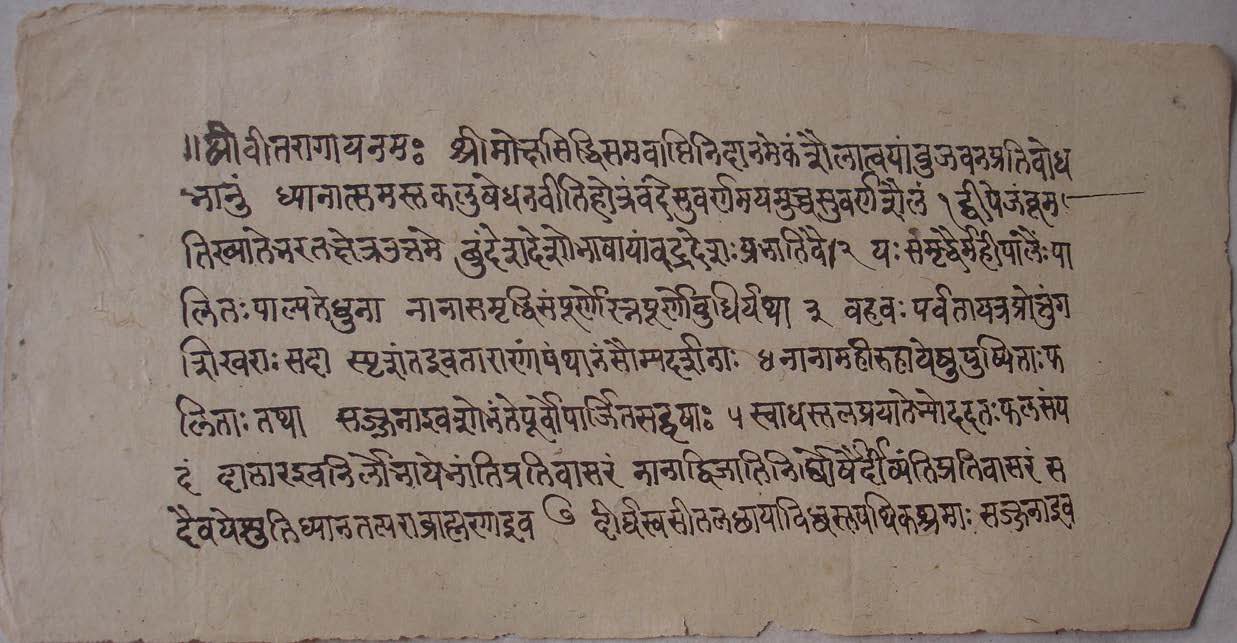 ॥ श्रीवीतरागायनमः श्रीमोक्षसिद्धिसमवाप्तिनिदानमेकं शैलात्वयांबुजवनप्रतिबोध
भानुं ध्यानात्समस्तकलुषेधनवीतिहोत्रं वंदे सुवर्णमयमुच्चसुवर्णशैलं १ द्वीपेजंबूम
तिख्याते भरतक्षेत्रउत्तमे बुंदेशदेशो भाषायां बद्रदेशः प्रभातिवै २ यः समृद्धैर्महीपालैः पा
लितः पाल्यतेधुना नानासमृद्धिसंपूर्णो रत्नपूर्णोबुधिर्यथा ३ बहवः पर्वतायत्रप्रोत्तुंग
शिखराः सदा स्पृशंतइवताराणां पंथानं सौम्यदर्शनाः ४ नानामहीरुहायेषुपुष्पिताः फ
लिताः तथा सज्जनाइवशोभंतेपूर्वोपार्जितसद्वृषाः ५ स्वाधस्तलप्रयातेभ्योददतः फलसंप
दं दातारइवनिर्लोभायेभांतिप्रतिवासरं नानाद्विजातिनिर्घोषैर्दीव्यंतिप्रतिवासरं स
दैवयेस्तुतिध्यानतत्पराब्राह्मणाइव ७ दीर्घस्वसीतलछायाविध्वस्तपथिकश्रमाः सज्जनाइव